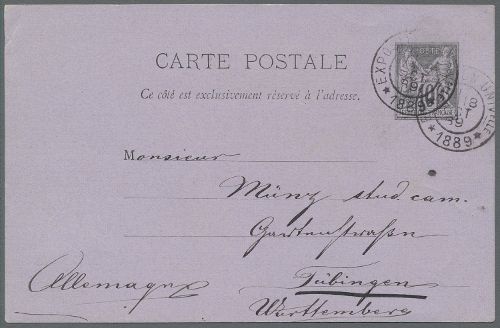 CARTE POSTALE
Ce côté est exclusivement réservé à l'adresse.
POSTE
10
EXPO
1889
UNIVLLE
18
1889
Monsieur
Münz stud. cam.
Gartenstraßn
Allemagne
Tübingen
Württemberg